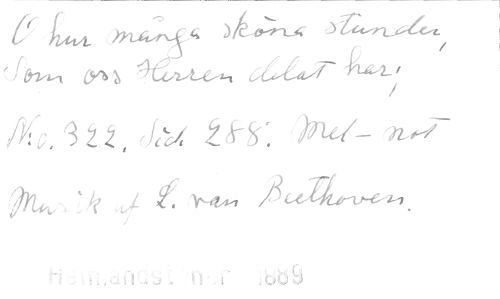 O hur många sköna stunder,
Som oss Herren delat har;
No. 322. Sid. 288. Mel-not
Musik af L. van Beethoven.
Hemlandst ner 1889